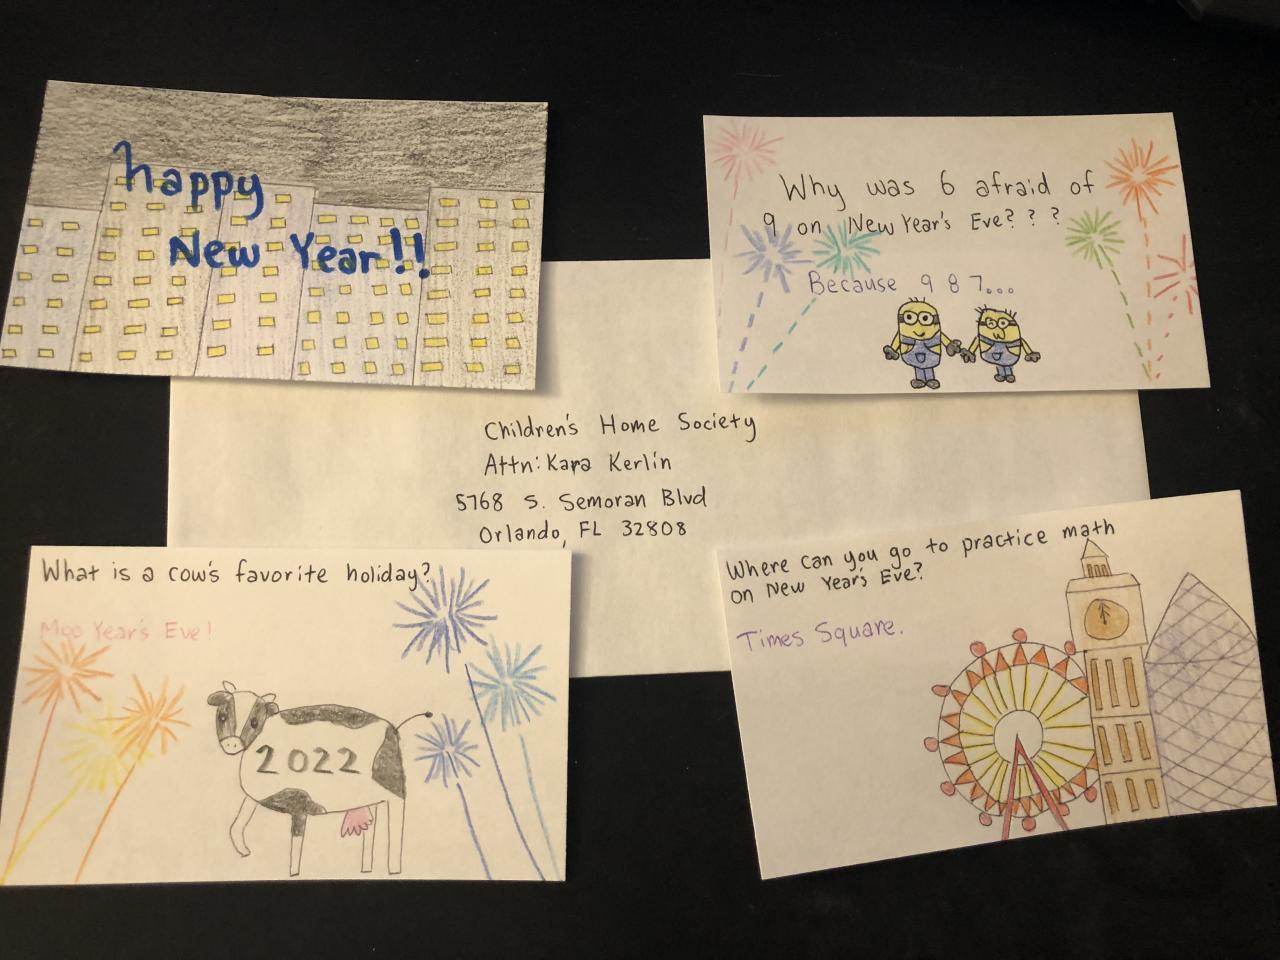 happy
New Year!!
Why was 6 afraid of
9 on New Year's Eve? ? ?
Because 9 8 7...
Children's Home Society
Attn: Kara Kerlin
5768 S. Semoran Blvd
Orlando, FL 32808
What is a cow's favorite holiday?
Moo Year's Eve!
2022
Where can you go to practice math
on New Year's Eve?
Times Square.